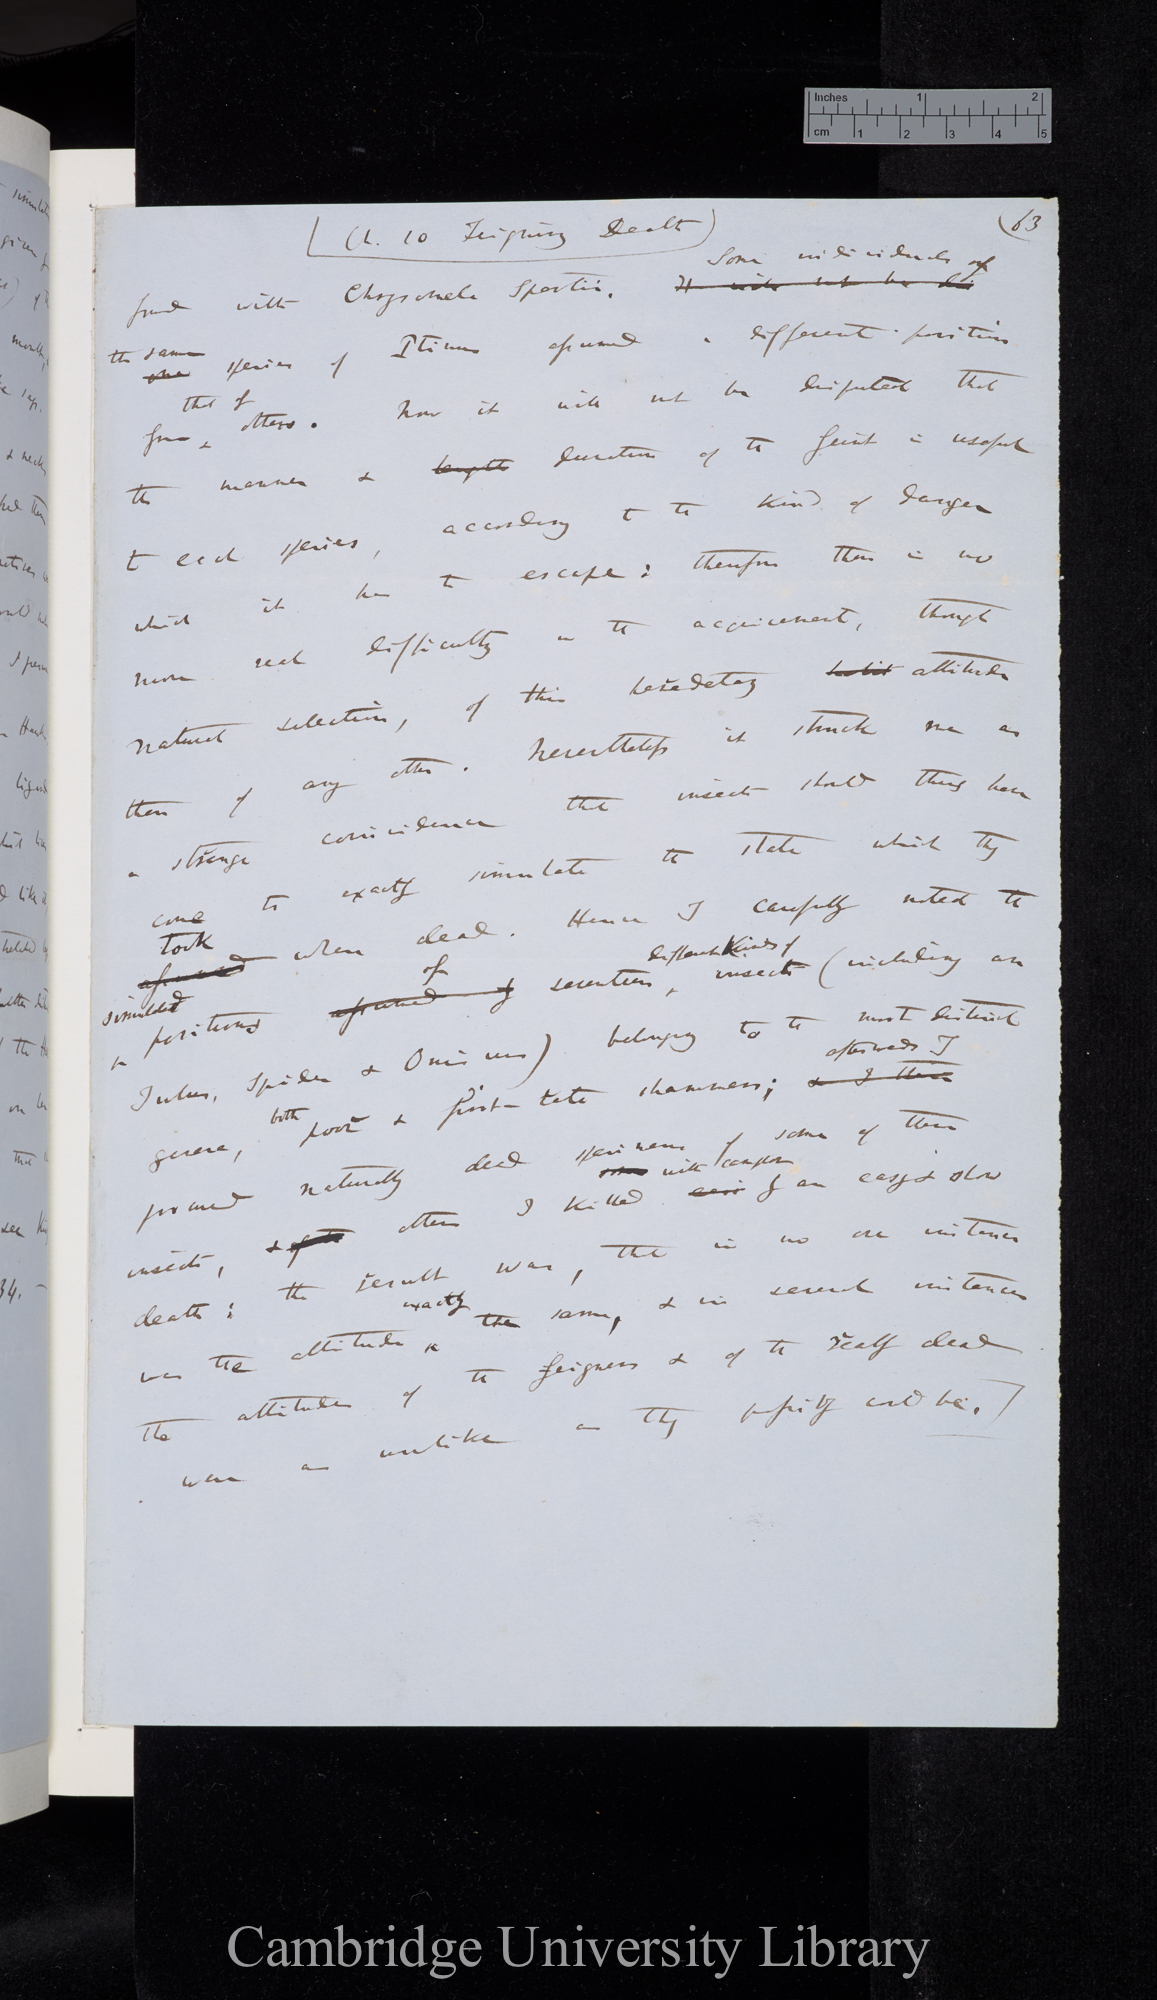 Ch. 10 Feigning Death
63
Some individuals of
found with Chrysomela Spartii. It will not be dis
the same
one species of Ptinus assumed a different position
that of
from others. Now it will not be disputed that
the manner & length duration of the feint is useful
to each species, according to the kind of danger
which it has to escape; therefore there is no
more real difficulty in the acquirement, through
natural selection, of this hereditary habit attitude
than of any other. Nevertheless it struck me as
a strange coincidence that insects should thus have
come to exactly simulate the state which they
took
assumed when dead. Hence I carefully noted the
simulated of different kinds of
positions assumed by seventeen insects (including an
Iulus, Spider & Oniscus) belonging to the most distinct
afterwards I
genera, both poor & first-rate shammers; & I then
procured naturally dead specimens of some of them
some with camphor
insects, & others I killed by an easy & slow
death; the result was, that in no one instance
exactly
was the attitude the same, & in several instances
the attitudes of the feigners & of the really dead
were as unlike as they possibly could be.
Inches 1 2
cm 1 2 3 4 5
Cambridge University Library